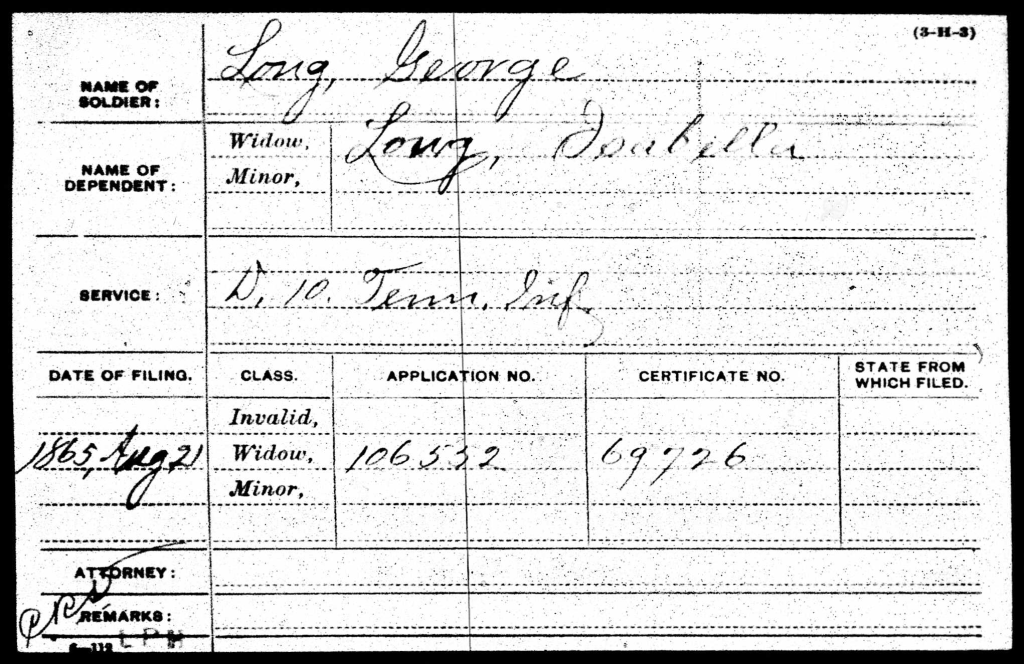 (3-H-3)
NAME OF SOLDIER: Long, George
NAME OF DEPENDENT: Widow, Long, Isabella
Minor,
SERVICE: D, 10. Tenn. Inf.
DATE OF FILING. CLASS. APPLICATION NO. CERTIFICATE NO. STATE FROM WHICH FILED.
Invalid,
1865, Aug 21 Widow, 106532 69726
Minor,
ATTORNEY:
REMARKS:
6—112 LPH